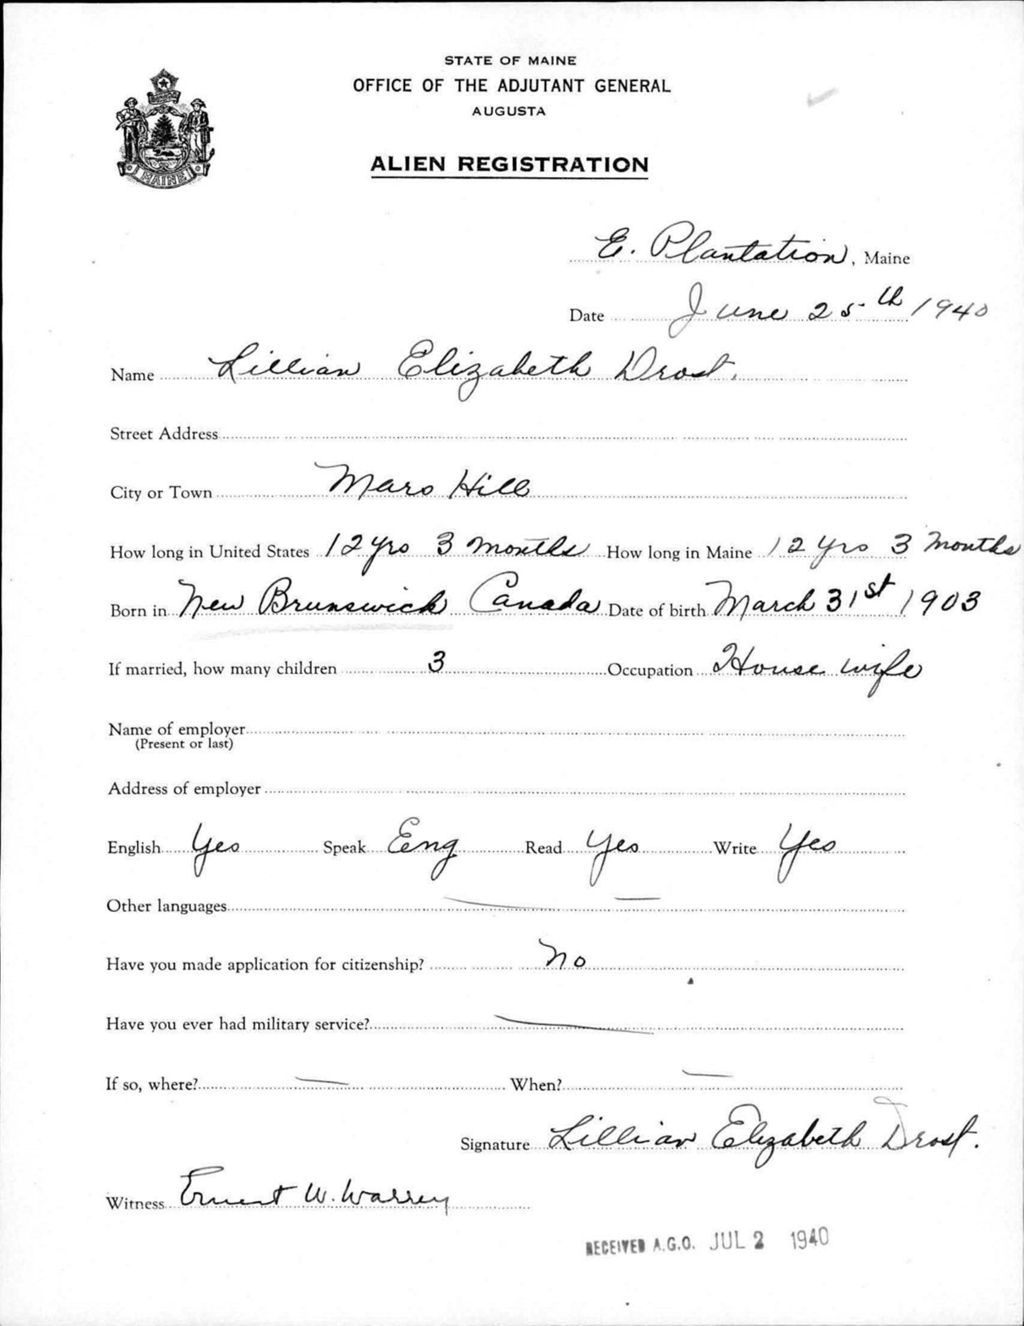 STATE OF MAINE
OFFICE OF THE ADJUTANT GENERAL
AUGUSTA
ALIEN REGISTRATION
MAINE
E. Plantation, Maine
Date June 25th 1940
Name Lillian Elizabeth Drost.
Street Address
City or Town Mars Hill
How long in United States 12 yrs 3 months How long in Maine 12 yrs 3 months
Born in New Brunswick Canada Date of birth March 31st 1903
If married, how many children 3 Occupation House wife
Name of employer
(Present or last)
Address of employer
English Yes Speak Eng Read Yes Write Yes
Other languages —
Have you made application for citizenship? No
Have you ever had military service? —
If so, where? — When? —
Signature Lillian Elizabeth Drost.
Witness Ernest W.
RECEIVED A.G.O. JUL 2 1940